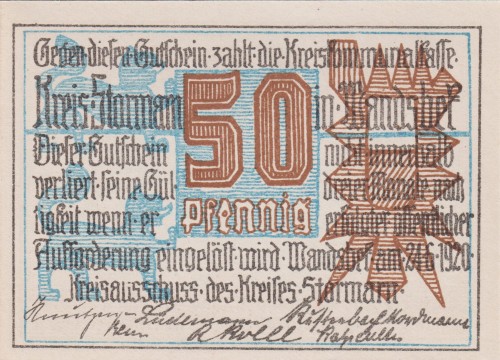 Gegen diesen Gutschein zahlt die Kreiskommunalkasse
Kreis Stormarn 50 in Wandsbek
Dieser Gutschein nicht innerhalb
verliert seine Gül- dreier Monate nach
tigkeit wenn er erfolgter öffentlicher
pfennig
Aufforderung eingelöst wird. Wandsbek am 21.6.1920
Kreisausschuss des Kreises Stormarn